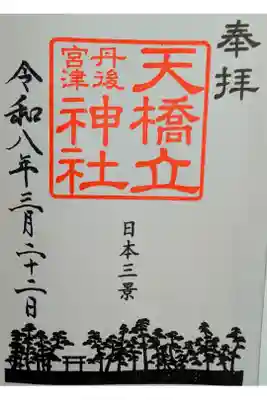 奉拝
天橋立
丹後
宮津
神社
日本三景
令和八年三月二十二日